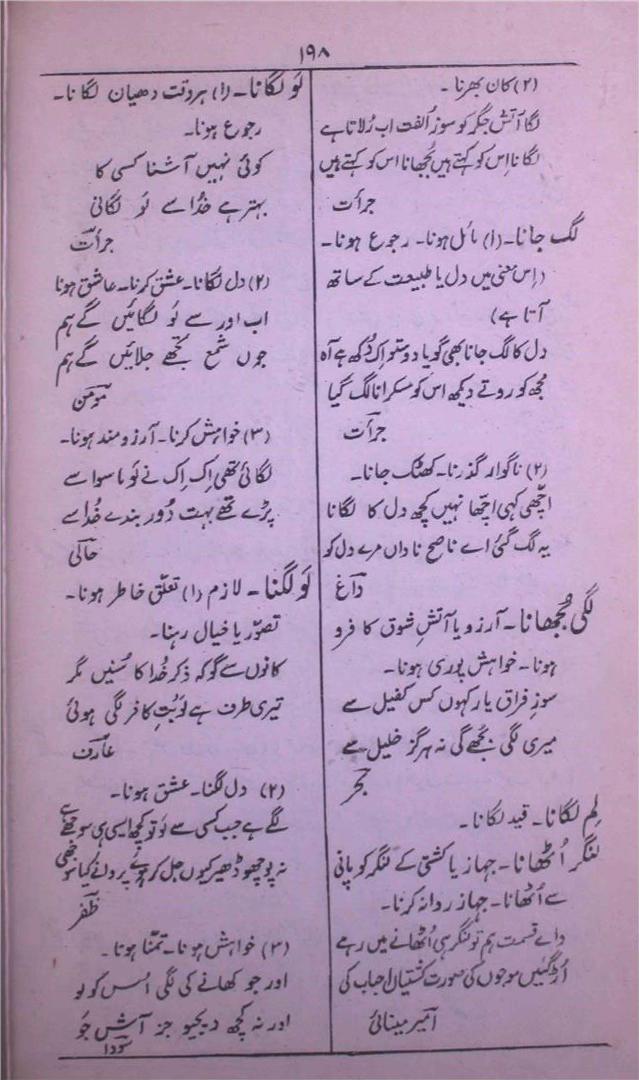 ۱۹۸
(۲) کان بھرنا۔
لگا آتش جگر کو سوز اُلفت اب رُلاتا ہے
لگانا اِس کو کہتے ہیں بُجھانا اس کو کہتے ہیں
جرأت
لگ جانا۔ (۱) مائل ہونا۔ رجوع ہونا۔
(اِس معنی میں دل یا طبیعت کے ساتھ
آتا ہے)
دل کا لگ جانا بھی گویا دوستو اِک دُکھ ہے آہ
مُجھ کو روتے دیکھ اس کو مسکرانا لگ گیا
جرأت
(۲) ناگوار گذرنا۔ کھٹک جانا۔
اچھی کہی اچھا نہیں کچھ دل کا لگانا
یہ لگ گئی اے ناصح ناداں مرے دل کو
داغ
لگی بُجھانا۔ آرزو یا آتشِ شوق کا فرو
ہونا۔ خواہش پوری ہونا۔
سوزِ فراق یار کہوں کس کفیل سے
میری لگی بجھے گی نہ ہرگز خلیل سے
لِم لگانا۔ قید لگانا۔
لنگر اُٹھانا۔ جہاز یا کشتی کے لنگر کو پانی
سے اُٹھانا۔ جہاز روانہ کرنا۔
وائے قسمت ہم تو لنگر ہی اُٹھانے میں رہے
اُڑ گئیں موجوں کی صورت کشتیاں احباب کی
امیر مینائی
لَو لگانا۔ (۱) ہر وقت دھیان لگانا۔
رجوع ہونا۔
کوئی نہیں آشنا کسی کا
بہتر ہے خُدا سے لَو لگانی
جرأت
(۲) دل لگانا۔ عشق کرنا۔ عاشق ہونا
اب اور سے لَو لگائیں گے ہم
جوں شمع تجھے جلائیں گے ہم
مومن
(۳) خواہش کرنا۔ آرزومند ہونا۔
لگائی تھی اِک اِک نے لَو ماسوا سے
پڑے تھے بہت دُور بندے خُدا سے
حالی
لَو لگنا۔ لازم (۱) تعلّق خاطر ہونا۔
تصوّر یا خیال رہنا۔
کانوں سے گو کہ ذکر خُدا کا سُنیں مگر
تیری طرف ہے لَو بُتِ کافر لگی ہوئی
عارف
(۲) دل لگنا۔ عشق ہونا۔
لگے ہے جب کسی سے لَو تو کچھ ایسی ہی سوجھے ہے
نہ پوچھو ڈھیر کیوں جل کر ہوئے پروانے کیا سوجھی
ظفر
(۳) خواہش ہونا۔ تمنّا ہونا۔
اور جو کھانے کی لگی اُس کو لو
اور نہ کچھ دیجیو جز آش جَو
سودا